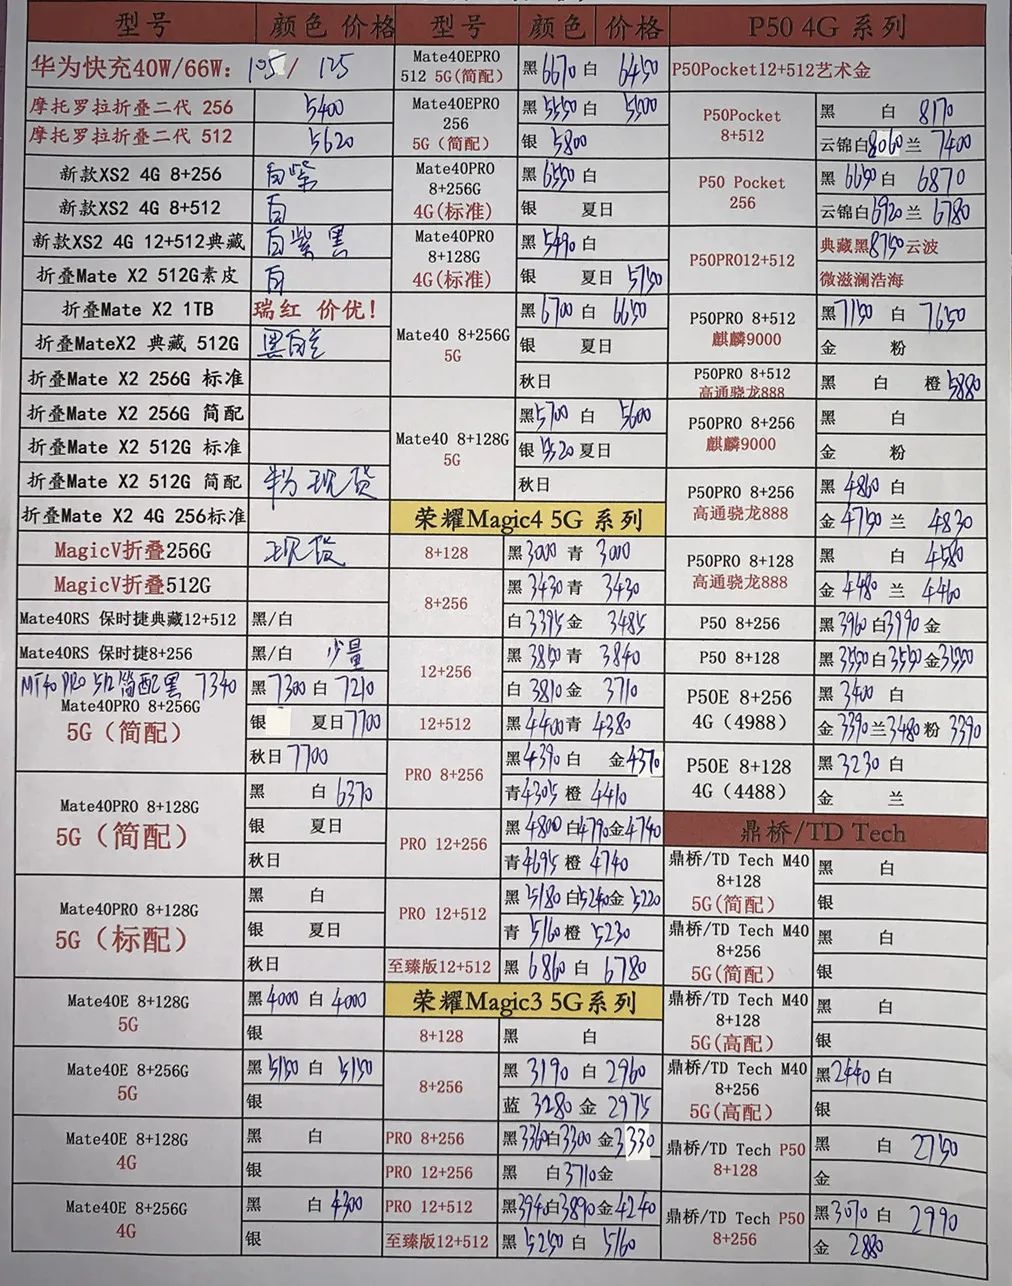 型号 颜色 价格
华为快充40W/66W: 105/ 125
摩托罗拉折叠二代 256 5400
摩托罗拉折叠二代 512 5620
新款XS2 4G 8+256 白紫
新款XS2 4G 8+512 白
新款XS2 4G 12+512典藏 白紫黑
折叠Mate X2 512G素皮 白
折叠Mate X2 1TB 瑞红 价优!
折叠MateX2 典藏 512G 黑白
折叠Mate X2 256G 标准
折叠Mate X2 256G 简配
折叠Mate X2 512G 标准
折叠Mate X2 512G 简配 粉 现货
折叠Mate X2 4G 256标准
MagicV折叠256G 现货
MagicV折叠512G
Mate40RS 保时捷典藏12+512 黑/白
Mate40RS 保时捷8+256 黑/白 少量
MT40 PRO 512简配黑 7340
Mate40PRO 8+256G
5G(简配)
黑7300 白 7210
银 夏日7700
秋日 7700
Mate40PRO 8+128G
5G(简配)
黑 白 6370
银 夏日
秋日
Mate40PRO 8+128G
5G(标配)
黑 白
银 夏日
秋日
Mate40E 8+128G
5G
黑4000 白 4000
银
Mate40E 8+256G
5G
黑 5150 白 5150
银
Mate40E 8+128G
4G
黑 白
银
Mate40E 8+256G
4G
黑 白 4300
银
型号 颜色 价格
Mate40EPRO
512 5G(简配)
黑 6670 白 6450
Mate40EPRO
256
5G(简配)
黑 5550 白 5500
银 5800
Mate40PRO
8+256G
4G(标准)
黑6550 白
银 夏日
Mate40PRO
8+128G
4G(标准)
黑 5490 白
银 夏日 5750
Mate40 8+256G
5G
黑6700 白 6650
银 夏日
秋日
Mate40 8+128G
5G
黑5700 白 5600
银 夏日
秋日
荣耀Magic4 5G 系列
8+128 黑3000 青 3000
8+256
黑 3430 青 3430
白 3395 金 3485
12+256
黑 3850 青 3840
白 3810 金 3710
12+512 黑 4400青 4380
PRO 8+256
黑4390 白 金4370
青4305 橙 4410
PRO 12+256
黑 4800 白4790金4740
青4695 橙 4740
PRO 12+512
黑 5180 白5240金 5220
青 5160 橙 5230
至臻版12+512 黑 6860 白 6780
荣耀Magic3 5G系列
8+128 黑 白
8+256
黑 3190 白 2960
蓝 3280 金 2975
PRO 8+256 黑3360白3300 金3330
PRO 12+256 黑 白3710金
PRO 12+512 黑3940白3890金4240
至臻版12+512 黑 5250 白 5160
P50 4G 系列
P50Pocket12+512艺术金
P50Pocket
8+512
黑 白 8170
云锦白8060兰 7400
P50 Pocket
256
黑 6650 白 6870
云锦白6920兰 6780
P50PRO12+512
典藏黑8750云波
微滋澜浩海
P50PRO 8+512
麒麟9000
黑7150 白 7650
金 粉
P50PRO 8+512
高通骁龙888
黑 白 橙5880
P50PRO 8+256
麒麟9000
黑 白
金 粉
P50PRO 8+256
高通骁龙888
黑 4860 白
金 4750 兰 4830
P50PRO 8+128
高通骁龙888
黑 白 4580
金 4480 兰 4460
P50 8+256 黑 3960 白3990金
P50 8+128 黑 3550白3550金3550
P50E 8+256
4G (4988)
黑 3400 白
金 3390兰3480 粉 3390
P50E 8+128
4G (4488)
黑3230 白
金 兰
鼎桥/TD Tech
鼎桥/TD Tech M40
8+128
5G(简配)
黑 白
银
鼎桥/TD Tech M40
8+256
5G(简配)
黑 白
银
鼎桥/TD Tech M40
8+128
5G(高配)
黑 白
银
鼎桥/TD Tech M40
8+256
5G(高配)
黑2440 白
银
鼎桥/TD Tech P50
8+128
黑 白 2750
金
鼎桥/TD Tech P50
8+256
黑3070 白 2990
金 2880